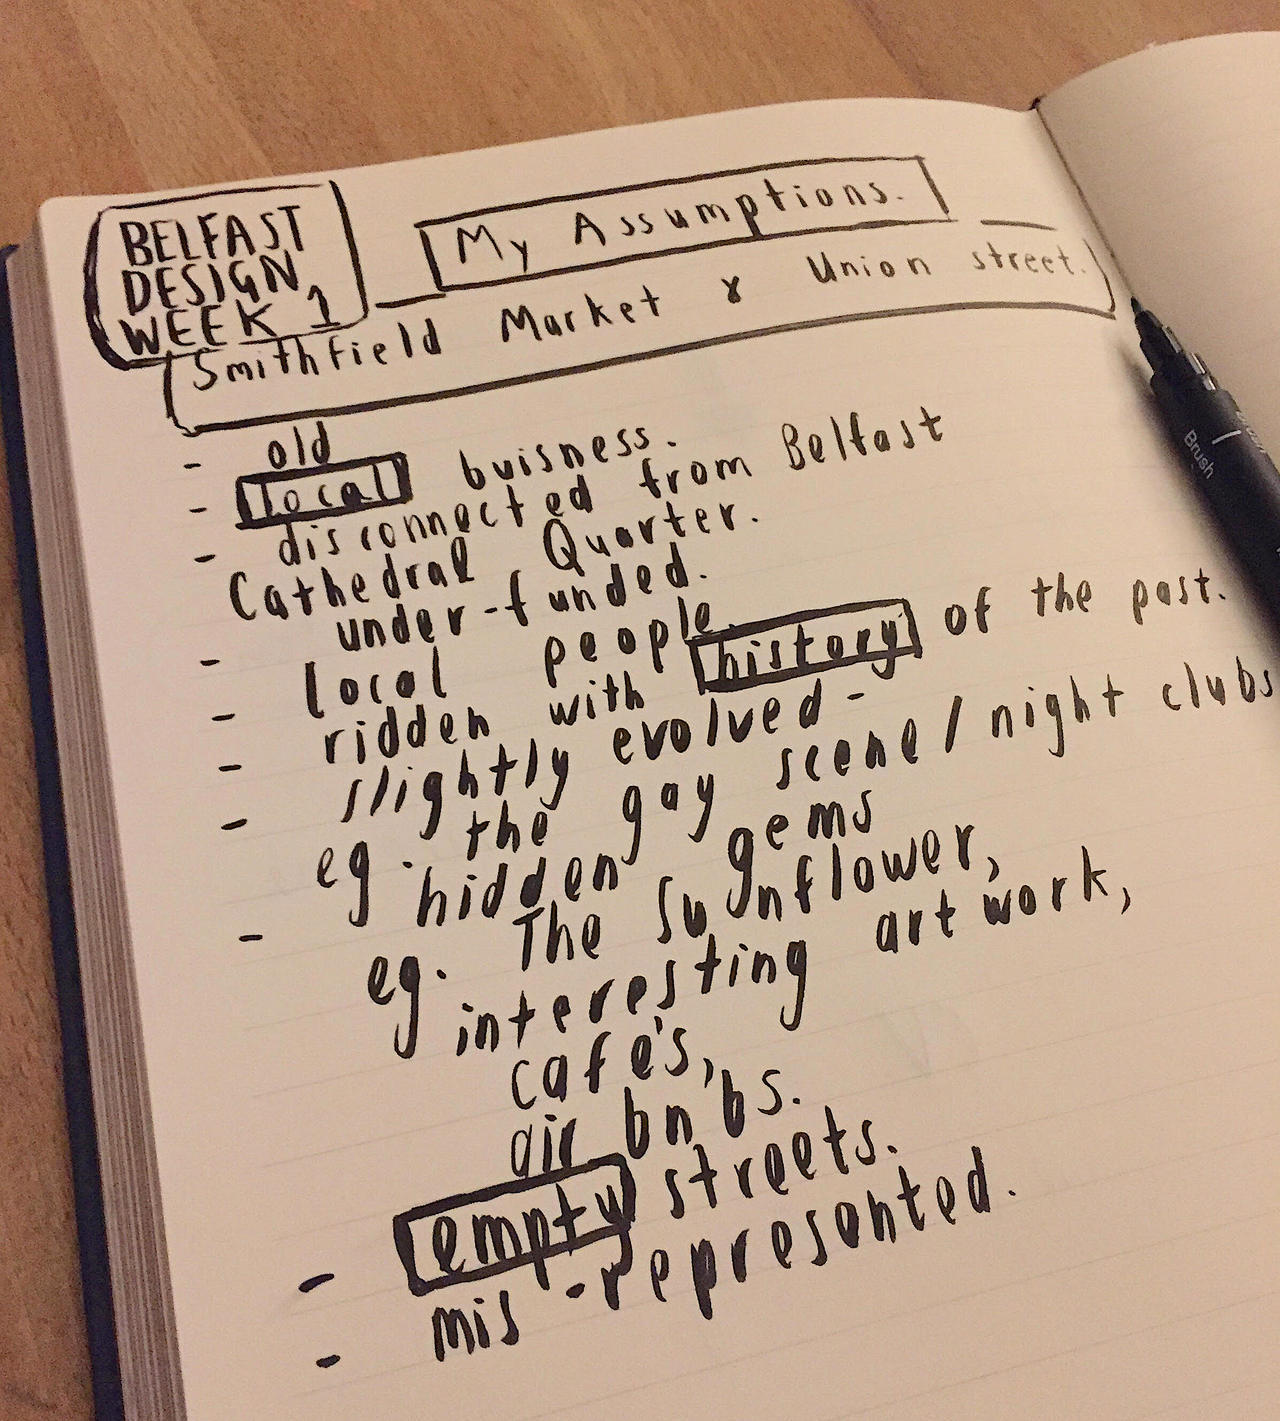 BELFAST
DESIGN
WEEK 1
My Assumptions.
Smithfield Market & Union street.
- old
- local buisness.
- disconnected from Belfast
Cathedral Quarter.
- under-funded.
- local people.
- ridden with history of the past.
- slightly evolved -
eg. the gay scene/night clubs
- hidden gems
eg. The Sunflower,
interesting artwork,
cafe's,
air bn'bs.
- empty streets.
- mis-represented.
Brush